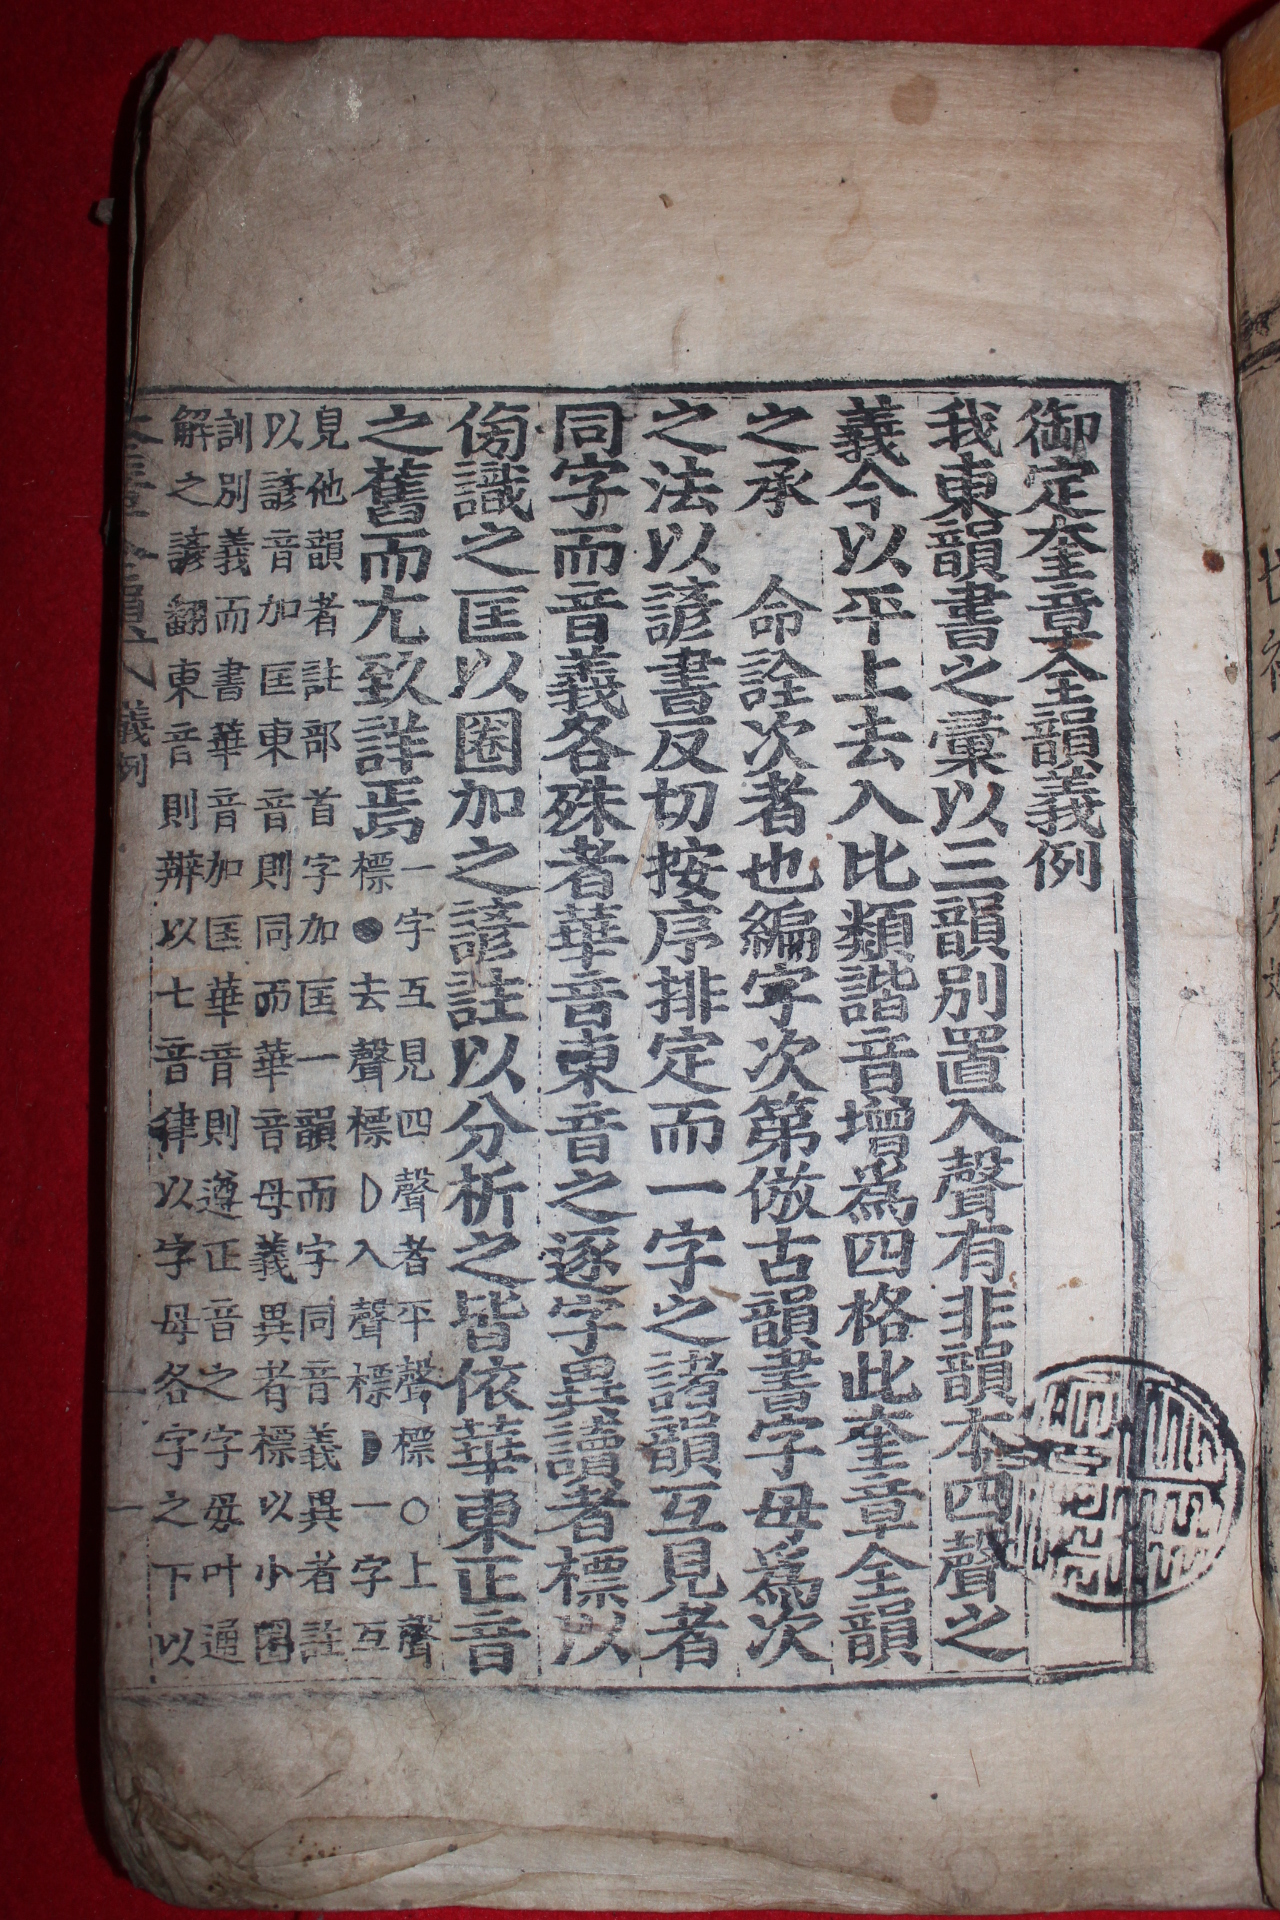 御定奎章全韻義例
我東韻書之彙以三韻別置入聲有非韻本四聲之
義今以平上去入比類諧音增爲四格此奎章全韻
之承　命詮次者也編字次第倣古韻書字母爲次
之法以諺書反切按序排定而一字之諸韻互見者
同字而音義各殊者華音東音之逐字異讀者標以
傍識之匡以圈加之諺註以分析之皆依華東正音
之舊而尢致詳焉
一字互見四聲者平聲標○上聲
標●去聲標D入聲標◗一字互
見他韻者註部首字加匡一韻而字同音義異者註
以諺音加匡東音則同而華音母義異者標以小圈
訓別義而書華音加匡華音則遵正音之字母叶通
解之諺翻東音則辨以七音律以字母各字之下以
義例
一